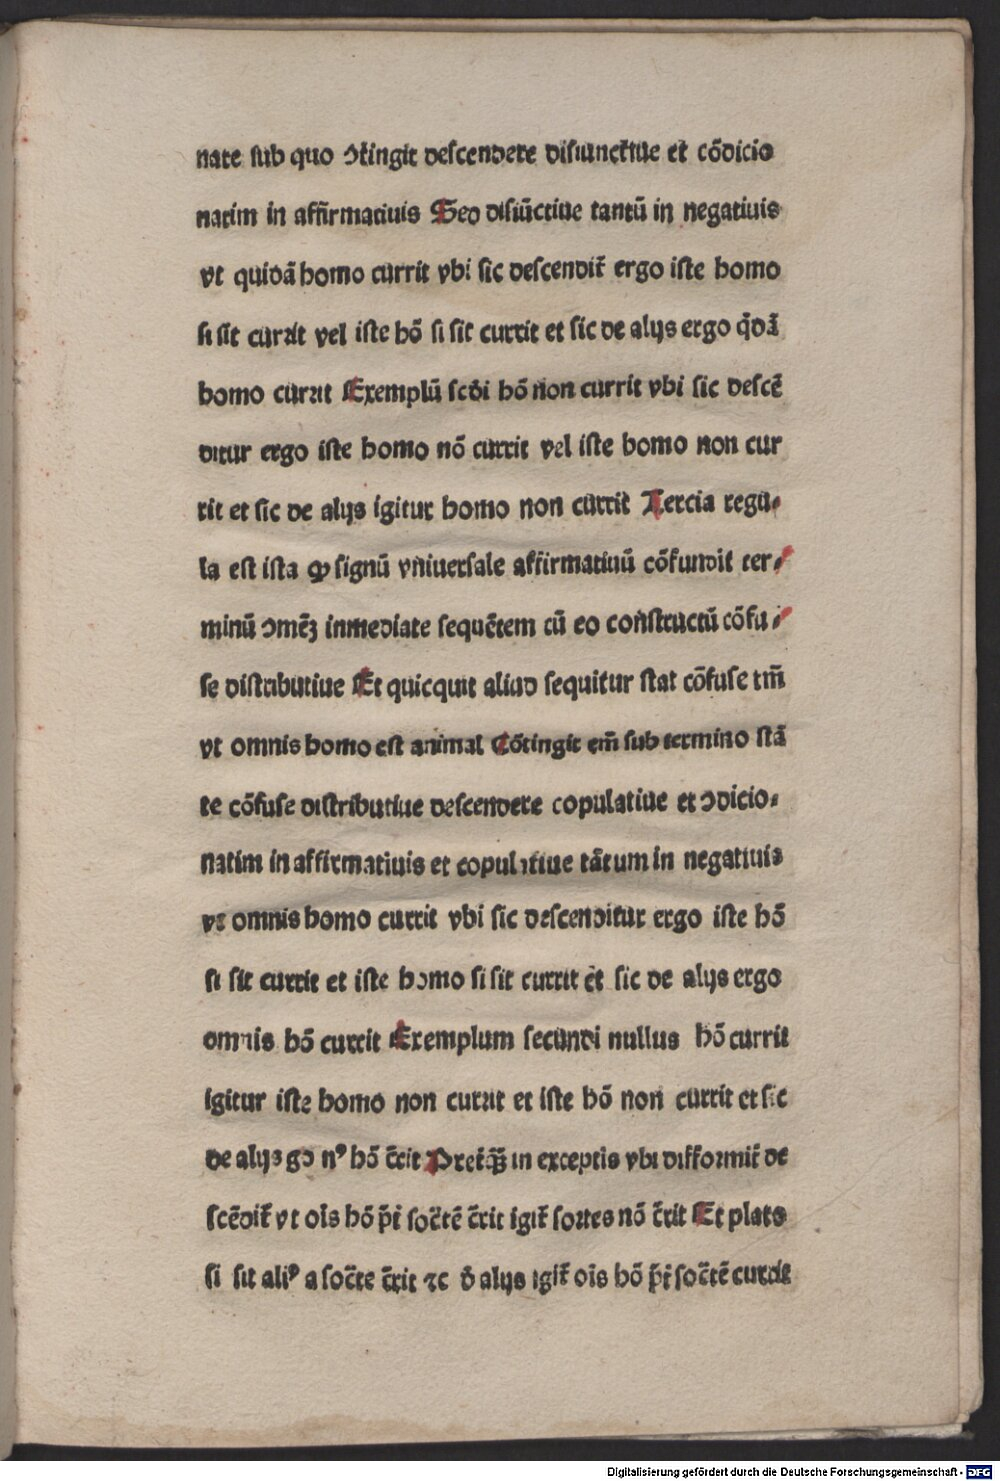 nate sub quo ↄtingit descendere disiunctiue et cōdicio
natim in affirmatiuis Sed disiūctiue tantū in negatiuis
vt quidā homo currit vbi sic descendit̄ ergo iste homo
si sit currit vel iste hō si sit currit et sic de alijs ergo q̄dā
homo currit Exemplū scd̄i hō non currit vbi sic descē
ditur ergo iste homo nō currit vel iste homo non cur
rit et sic de alijs igitur homo non currit Tercia regu⸗
la est ista ꝙ signū vniuersale affirmatiuū cōfundit ter⸗
minū ↄmēʒ inmediate sequētem cū eo constructū cōfu⸗
se distributiue Et quicquit aliud sequitur stat cōfuse tm̄
vt omnis homo est animal Cōtingit em̄ sub termino stā
te cōfuse distributiue descendere copulatiue et ↄdicio⸗
natim in affirmatiuis et copulatiue tātum in negatiuis
vt omnis homo currit vbi sic descenditur ergo iste hō
si sit currit et iste homo si sit currit et sic de alijs ergo
omnis hō currit Exemplum secundi nullus hō currit
igitur iste homo non currit et iste hō non currit et sic
de alijs go nꝰ hō c̄rit Pret̄q̄ʒ in exceptis vbi difformit̄ de
scēdit̄ vt oīs hō p̄t̄ soc̄tē c̄rit igit̄ sortes nō c̄rit Et plato
si sit aliꝰ a soc̄te c̄rit ⁊c d̄ alijs igit̄ oīs hō p̄t̄ soc̄tē currit
Digitalisierung gefördert durch die Deutsche Forschungsgemeinschaft - DFG